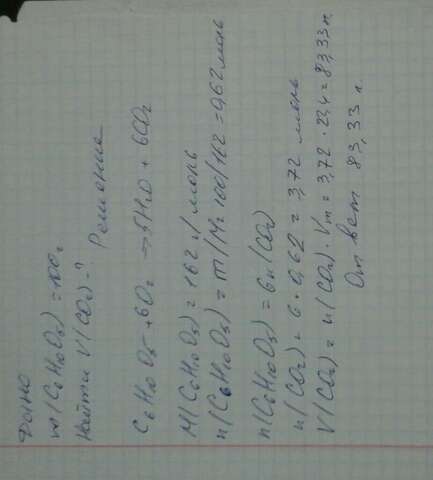 Дано
m(C6H10O5) = 100г
Найти V(CO2)-?
Решение
C6H10O5 + 6O2 → 5H2O + 6CO2
M(C6H10O5) = 162 г/моль
n(C6H10O5) = m/M = 100/162 = 0,62 моль
n(C6H10O5) = 6n(CO2)
n(CO2) = 6 · 0,62 = 3,72 моль
V(CO2) = n(CO2) · Vm = 3,72 · 22,4 = 83,33 л
Ответ 83,33 л.